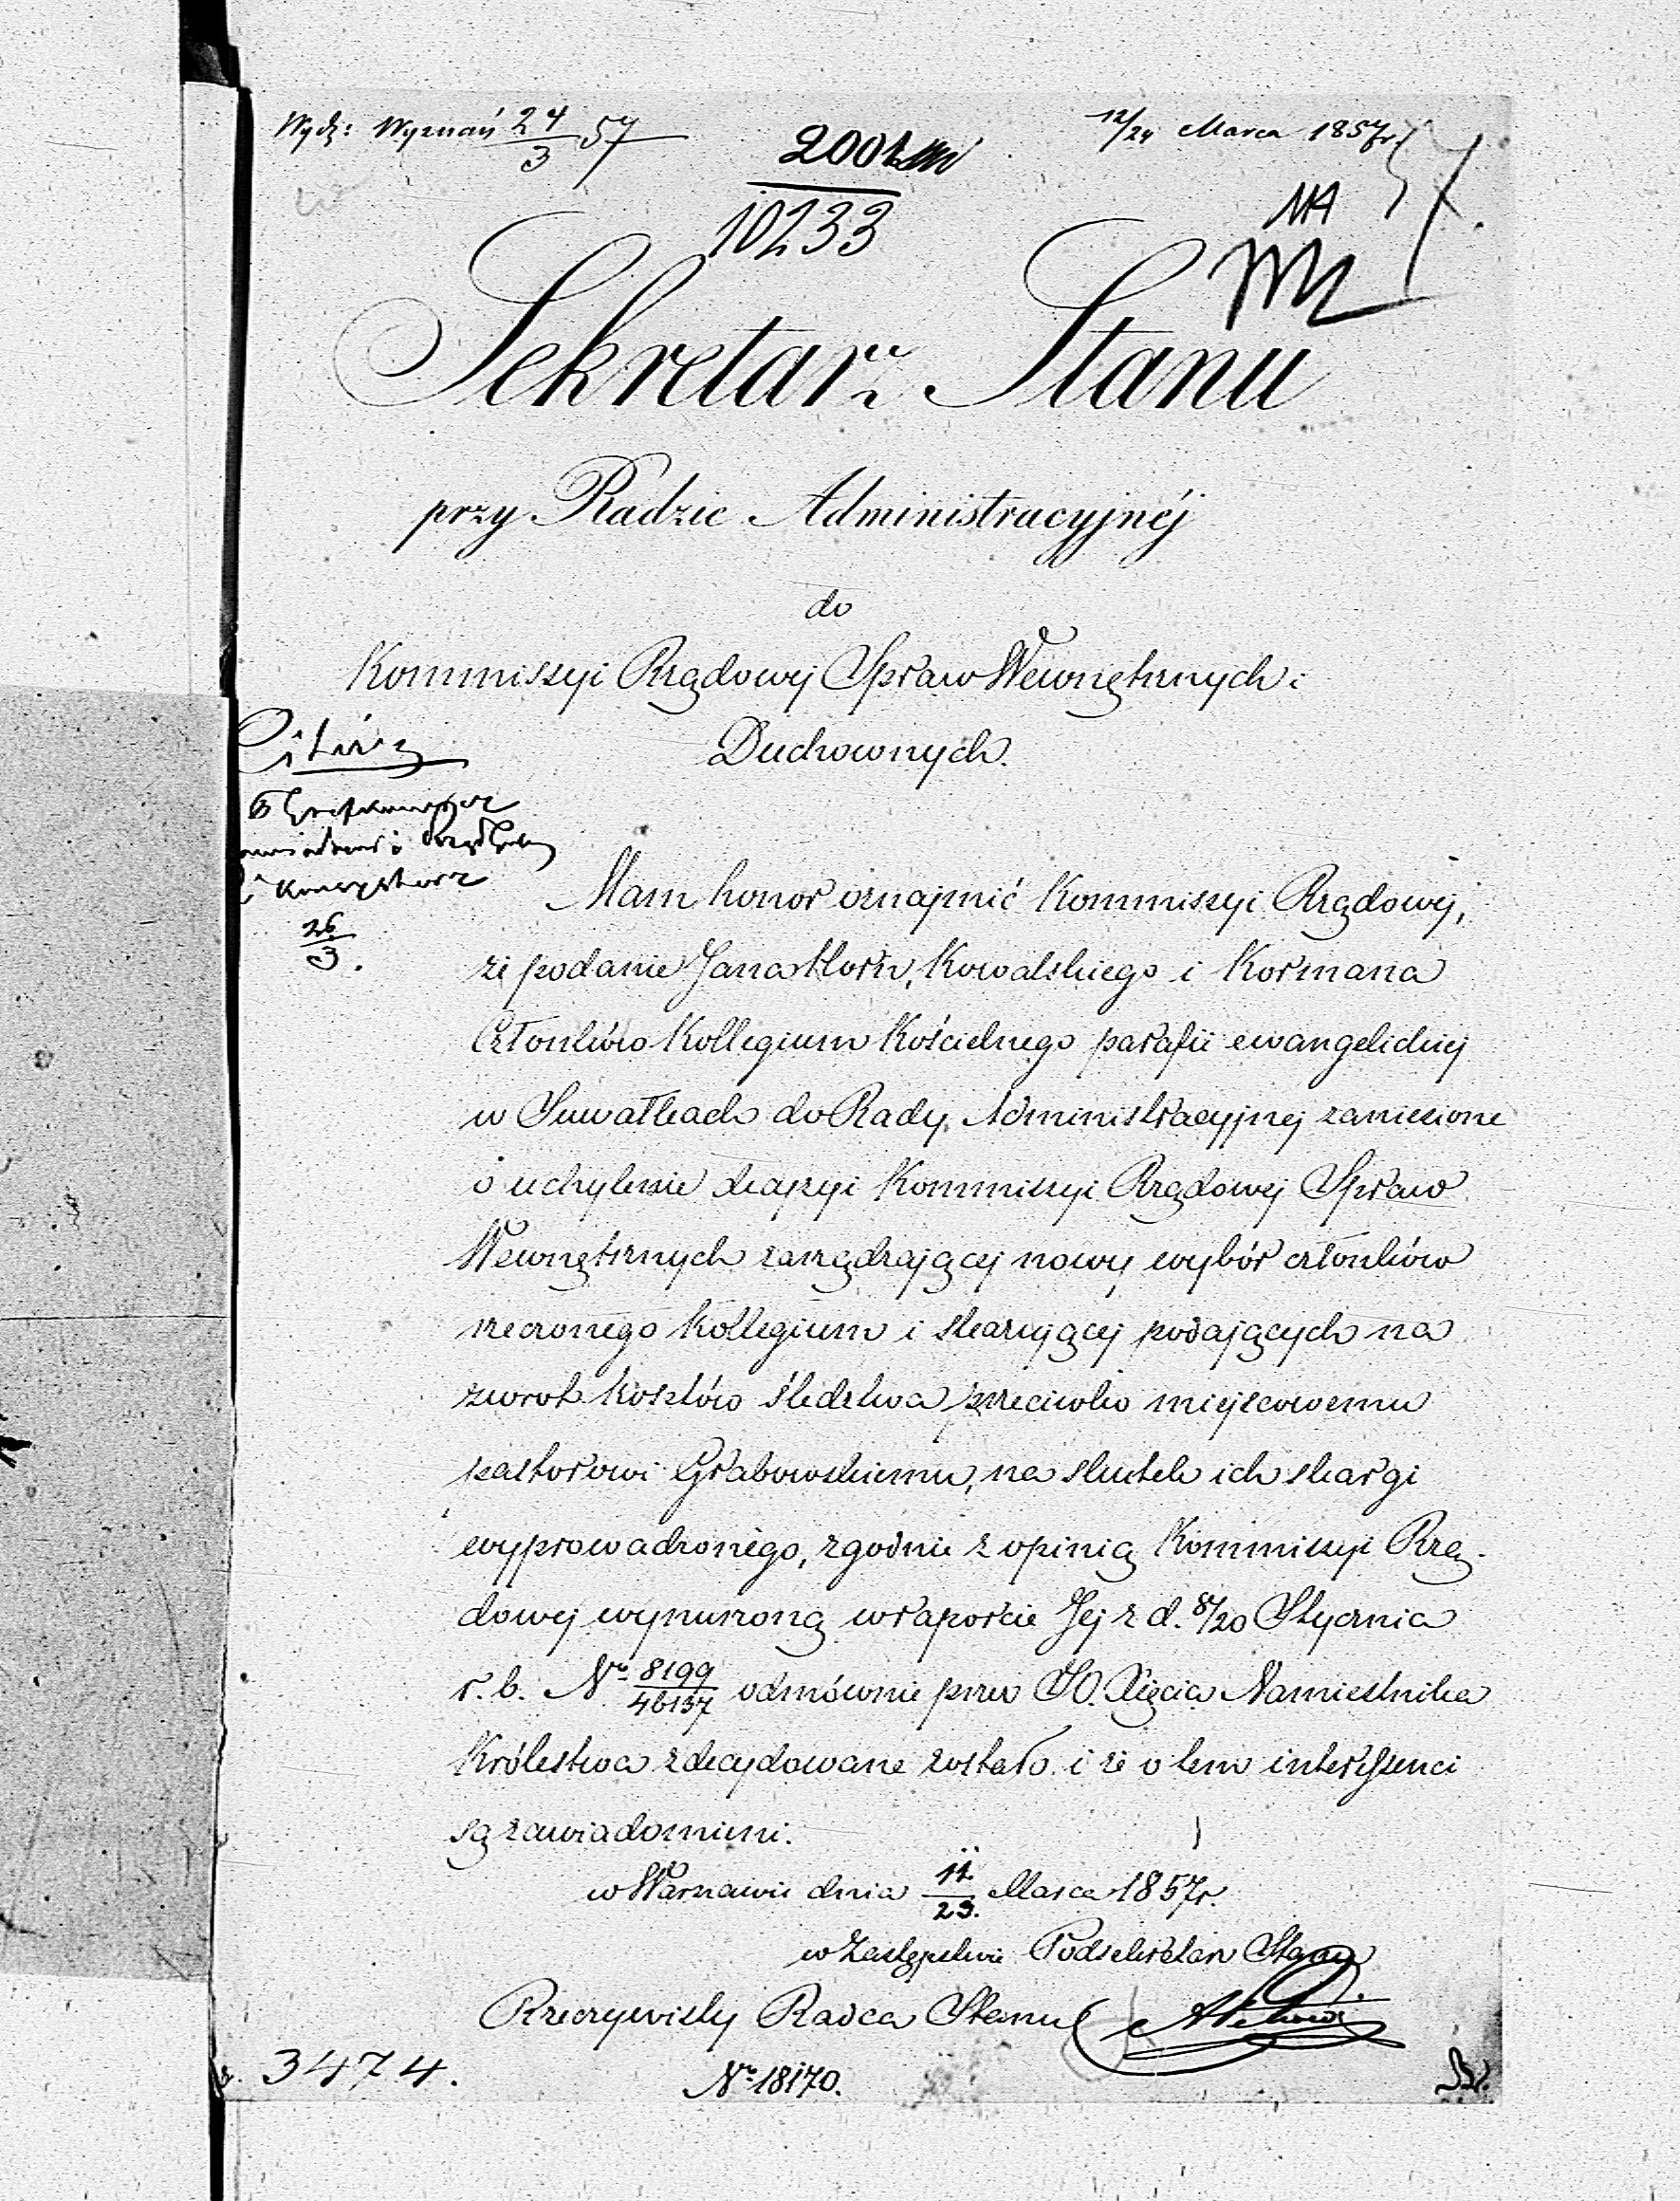 Wydz: Wyznań 24/3 57
12/24 Marca 1857r.
2001
10233
Sekretarz Stanu
przy Radzie Administracyjnéj
do
Kommissyi Rządowej Spraw Wewnętrznych i
Duchownych.
26/3.
Mam honor oznajmić Kommissyi Rządowej,
że podanie Jana Horn, Kowalskiego i Kormana
Członków Kollegium Kościelnego parafii ewangelickiej
w Suwałkach do Rady Administracyjnej zaniesione
o uchylenie decyzyi Kommissyi Rządowej Spraw
Wewnętrznych zarządzającej nowy wybór członków
rzeczonego Kollegium i skazującej podających na
zwrot kosztów śledztwa przeciwko miejscowemu
pastorowi Grabowskiemu, na skutek ich skargi
wyprowadzonego, zgodnie z opinią Kommissyi Rzą-
dowej wynurzoną w raporcie Jej z d. 8/20 Stycznia
r. b. No 8199/46137 odmownie przez JO. Xięcia Namiestnika
Królestwa zdecydowane zostało i że o tem interessenci
są zawiadomieni.
w Warszawie dnia 11/23. Marca 1857r.
w Zastępstwie Podsekretarz Stanu
Rzeczywisty Radca Stanu
3474.
No 18170.